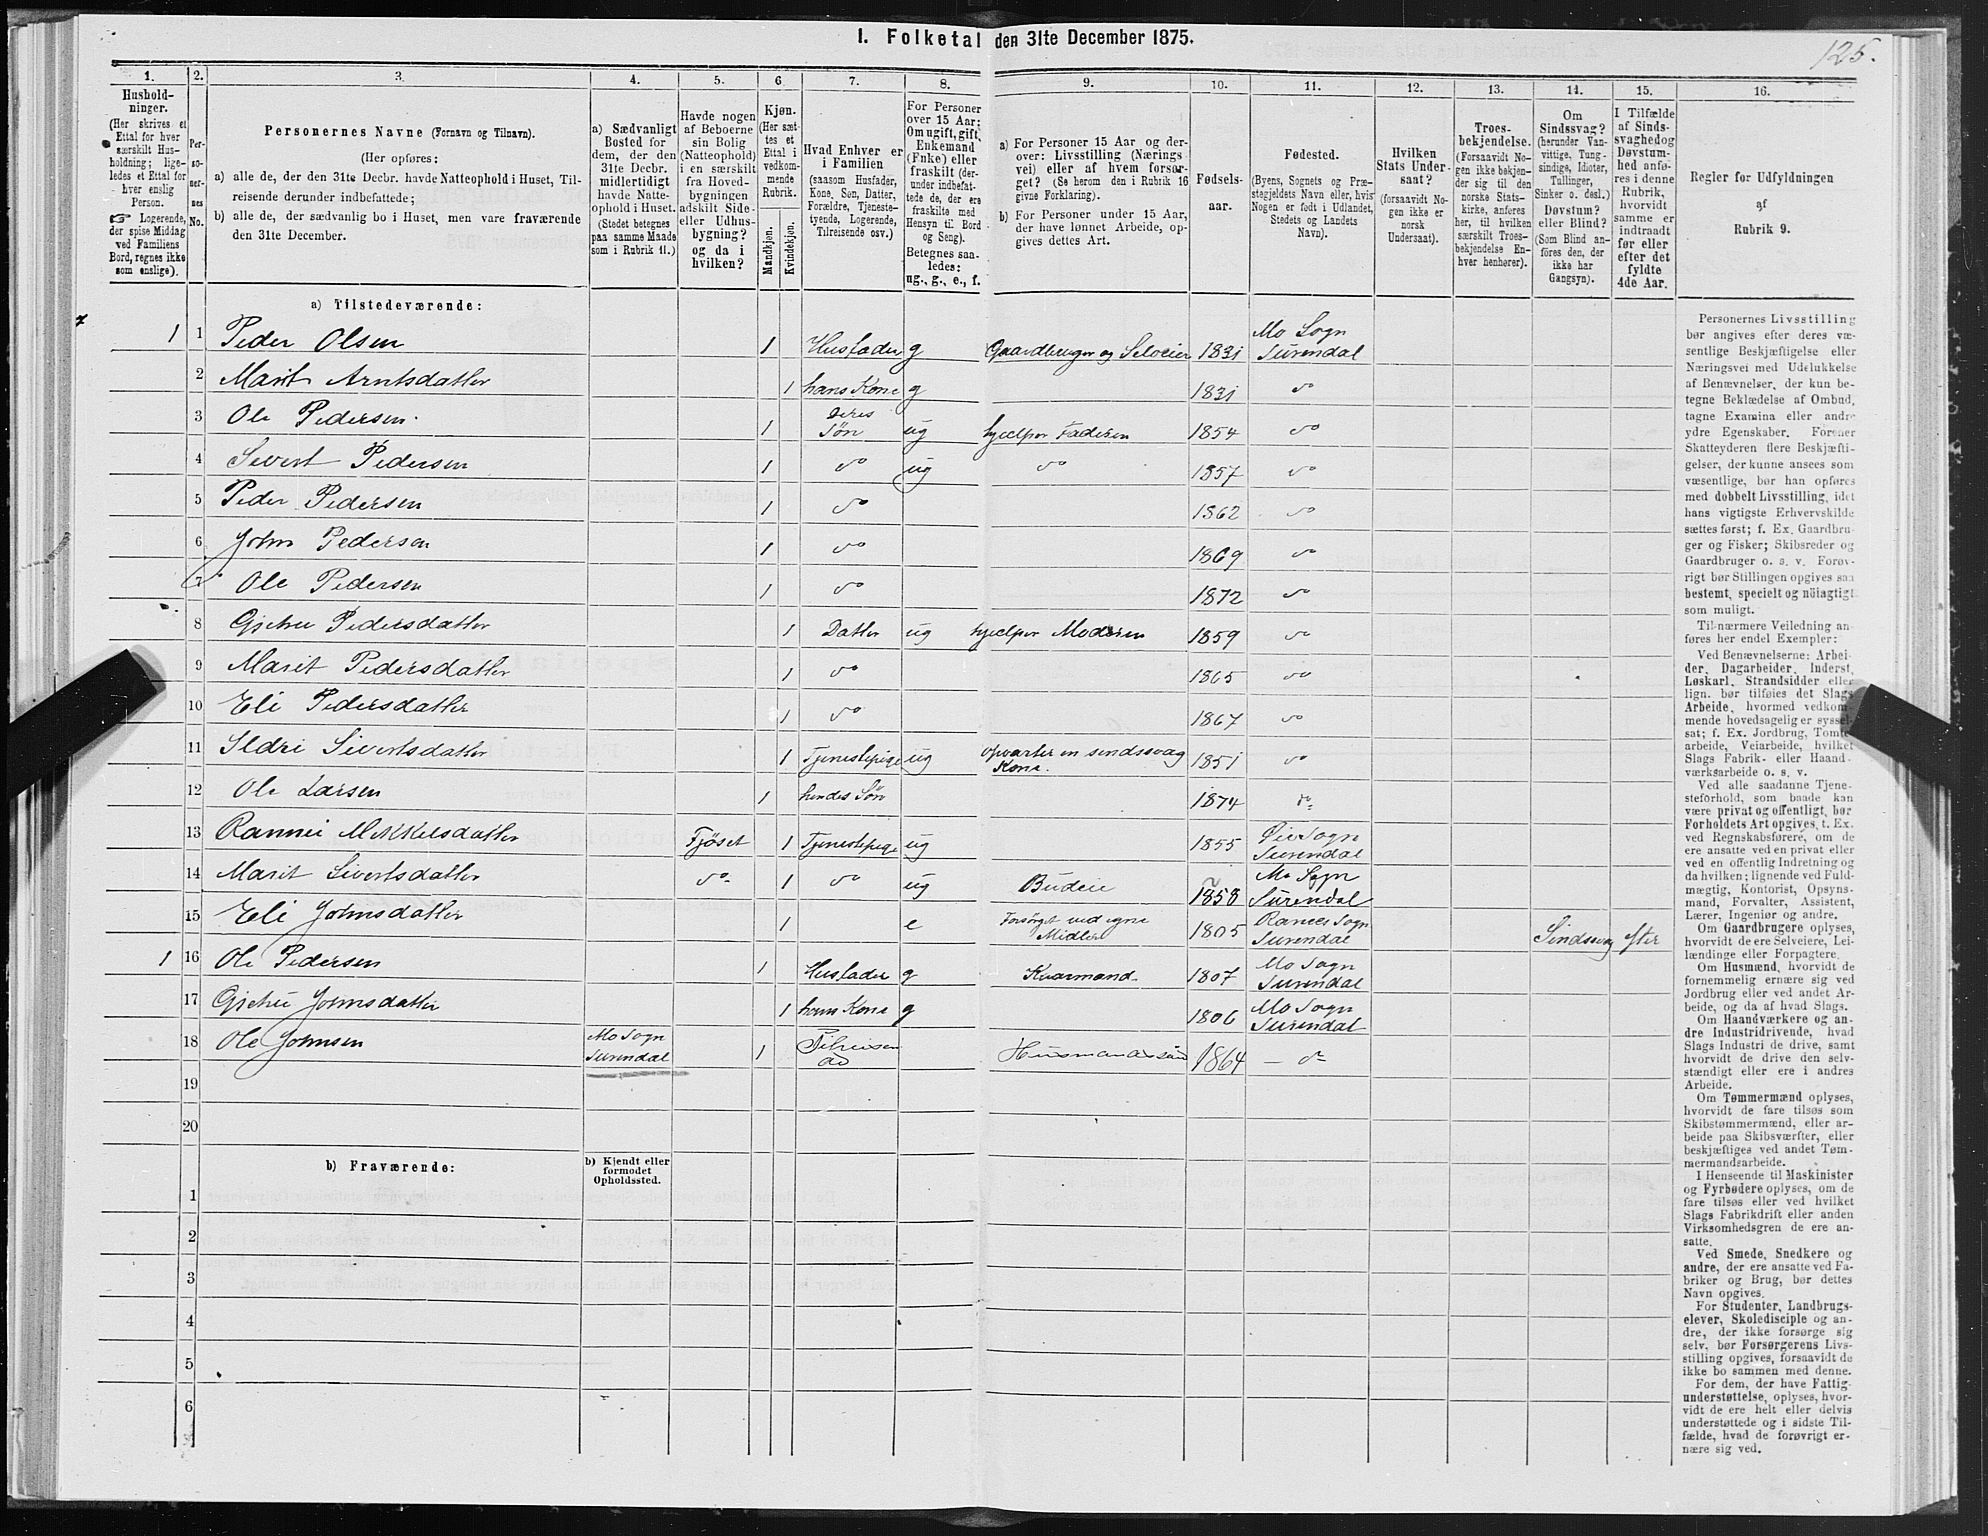 I. Folketal den 31te December 1875.
125.
1.
2.
3.
4.
5.
6
7.
8.
9.
10.
11.
12.
13.
14.
15.
16.
Hushold-
ninger.
(Her skrives et
Ettal for hver
særskilt Hus-
holdning; lige-
ledes et Ettal for
hver enslig
Person.
☞ Logerende,
der spise Middag
ved Familiens
Bord, regnes ikke
som enslige).
Per-
so-
ner-
nes
No.
Personernes Navne (Fornavn og Tilnavn).
(Her opføres:
a) alle de, der den 31te Decbr. havde Natteophold i Huset, Til-
reisende derunder indbefattede;
b) alle de, der sædvanlig bo i Huset, men vare fraværende
den 31te December.
a) Sædvanligt
Bosted for
dem, der den
31te Decbr.
midlertidigt
havde Natte-
ophold i Huset.
(Stedet betegnes
paa samme Maade
som i Rubrik 11.)
Havde nogen
af Beboerne
sin Bolig
(Natteophold)
i en særskilt
fra Hoved-
bygningen
adskilt Side-
eller Udhus-
bygning?
og da i
hvilken?
Kjøn.
(Her sæt-
tes et
Ettal i
vedkom-
mende
Rubrik.
Mandkjøn.
Kvindekjøn.
Hvad Enhver er
i Familien
(saasom Husfader,
Kone, Søn, Datter,
Forældre, Tjeneste-
tyende, Logerende,
Tilreisende osv.)
For Personer
over 15 Aar:
Om ugift, gift,
Enkemand
(Enke) eller
fraskilt (der-
under indbefat-
tede de, der ere
fraskilte med
Hensyn til Bord
og Seng).
Betegnes saa-
ledes:
ug., g., e., f.
a) For Personer 15 Aar og der-
over: Livsstilling (Nærings
vei) eller af hvem forsør-
get? (Se herom den i Rubrik 16
givne Forklaring).
b) For Personer under 15 Aar,
der have lønnet Arbeide, op-
gives dettes Art.
Fødsels-
aar.
Fødested.
(Byens, Sognets og Præ-
stegjeldets Navn eller, hvis
Nogen er født i Udlandet,
Stedets og Landets
Navn).
Hvilken
Stats Under-
saat?
(forsaavidt No-
gen ikke er
norsk
Undersaat).
Troes-
bekjendelse.
(Forsaavidt No-
gen ikke bekjen-
der sig til den
norske Stats-
kirke, anføres
her, til hvilken
særskilt Troes-
bekjendelse En-
hver henhører).
Om
Sindssvag?
(herunder Van-
vittige, Tung-
sindige, Idioter,
Tullinger,
Sinker o. desl.)
Døvstum?
eller Blind?
(Som Blind an-
føres den, der
ikke har
Gangsyn).
I Tilfælde
af Sinds-
svaghed og
Døvstum-
hed anfø-
res i denne
Rubrik,
hvorvidt
samme er
indtraadt
før eller
efter det
fyldte
4de Aar.
Regler for Udfyldningen
af
Rubrik 9.
a) Tilstedeværende:
1 1 Peder Olsen 1 Husfader g Gaardbruger og Seloeier 1831 Mo Sogn Surendal
2 Marit Arntsdatter 1 hans Kone g 1831 do
3 Ole Pedersen 1 Deres Søn ug hjælper Faderen 1854 do
4 Sivert Pedersen 1 do ug do 1857 do
5 Peder Pedersen 1 do 1862 do
6 John Pedersen 1 do 1869 do
7 Ole Pedersen 1 do 1872 do
8 Gjertru Pedersdatter 1 Datter ug hjælper Moderen 1859 do
9 Marit Pedersdatter 1 do 1865 do
10 Eli Pedersdatter 1 do 1867 do
11 Ildri Sivertsdatter 1 Tjenestepige ug opvarter en sindssvag Kone. 1851 do
12 Ole Larsen 1 hendes Søn 1874 do
13 Rannei Mikkelsdatter Fjøset 1 Tjenestepige ug 1855 Øie Sogn Surendal
14 Marit Sivertsdatter do 1 do ug Budeie 1858 Mo Sogn Surendal
15 Eli Johnsdatter 1 e Forsørget ved egne Midler 1805 Ranes Sogn Surendal Sindssvag efter
1 16 Ole Pedersen 1 Husfader g Kaarmand 1807 Mo Sogn Surendal
17 Gjertru Johnsdatter 1 hans Kone g 1806 Mo Sogn Surendal
18 Ole Johnsen Mo Sogn Surendal 1 Husmandssøn 1864 — do
19
20
b) Fraværende:
b) Kjendt eller
formodet
Opholdssted.
1
2
3
4
5
6
Personernes Livsstilling
bør angives efter deres væ-
sentlige Beskjæftigelse eller
Næringsvei med Udelukkelse
af Benævnelser, der kun be-
tegne Beklædelse af Ombud,
tagne Examina eller andre
ydre Egenskaber. Forener
Skatteyderen flere Beskjæfti-
gelser, der kunne ansees som
væsentlige, bør han opføres
med dobbelt Livsstilling, idet
hans vigtigste Erhvervskilde
sættes først; f. Ex. Gaardbru-
ger og Fisker; Skibsreder og
Gaardbruger o. s. v. Forøv-
rigt bør Stillingen opgives saa
bestemt, specielt og nøiagtigt
som muligt.
Til nærmere Veiledning an-
føres her endel Exempler:
Ved Benævnelserne: Arbei-
der, Dagarbeider, Inderst,
Løskarl, Strandsidder eller
lign. bør tilføies det Slags
Arbeide, hvormed vedkom-
mende hovedsagelig er syssel-
sat; f. Ex. Jordbrug, Tomte-
arbeide, Veiarbeide, hvilket
Slags Fabrik- eller Haand-
værksarbeide o. s. v.
Ved alle saadanne Tjene-
steforhold, som baade kan
være privat og offentligt, bør
Forholdets Art opgives, t. Ex.
ved Regnskabsførere, om de
ere ansatte ved en privat eller
ved en offentlig Indretning og
da hvilken; lignende ved Fuld-
mægtig, Kontorist, Opsyns-
mand, Forvalter, Assistent,
Lærer, Ingeniør og andre.
Om Gaardbrugere oplyses,
hvorvidt de ere Selveiere, Lei-
lændinge eller Forpagtere.
Om Husmænd, hvorvidt de
fornemmelig ernære sig ved
Jordbrug eller ved andet Ar-
beide, og da af hvad Slags.
Om Haandværkere og an-
dre Industridrivende, hvad
Slags Industri de drive, samt
hvorvidt de drive den selv-
stændigt eller ere i andres
Arbeide.
Om Tømmermænd oplyses,
hvorvidt de fare tilsøs som
Skibstømmermænd, eller ar-
beide paa Skibsværfter, eller
beskjæftiges ved andet Tøm-
mermandsarbeide.
I Henseende til Maskinister
og Fyrbødere oplyses, om de
fare tilsøs eller ved hvilket
Slags Fabrikdrift eller anden
Virksomhedsgren de ere an-
satte.
Ved Smede, Snedkere og
andre, der ere ansatte ved Fa-
briker og Brug, bør dettes
Navn opgives.
For Studenter, Landbrugs-
elever, Skoledisciple og an-
dre, der ikke forsørge sig
selv, bør Forsørgerens Livs-
stilling opgives, forsaavidt de
ikke bo sammen med denne.
For dem, der have Fattig-
understøttelse, oplyses, hvor-
vidt de ere helt eller delvis
understøttede og i sidste Til-
fælde, hvad de forøvrigt er-
nære sig ved.